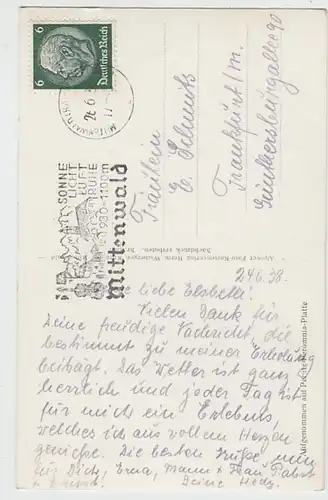 6 Deutsches Reich 6
SONNE
LICHT
LUFT
RUHE
930-1100m
Mittenwald
Fräulein
E. Schmitz
Frankfurt/m.
Günthersburgallee 90
24.6.38.
liebe Elsbeth!
Vielen Dank für
Deine freudige Nachricht, die
bestimmt zu meiner Erholung
beiträgt. Das Wetter ist ganz
herrlich und jeder Tag ist
für mich ein Erlebnis,
welches ich aus vollem Herzen
genieße. Die besten Grüße nun
für Dich, Erna, Mama & Frau Pabst
Deine Hedy.
Aufgenommen auf Perutz Peromnia-Platte
Nachdruck verboten.